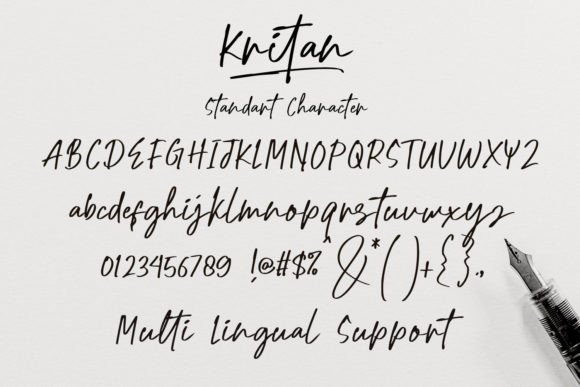 Kritan
Standart Character
ABCDEFGHIJKLMNOPQRSTUVWXYZ
abcdefghijklmnopqrstuvwxyz
0123456789 !@#$%^&*()+{}.,
Multi Lingual Support